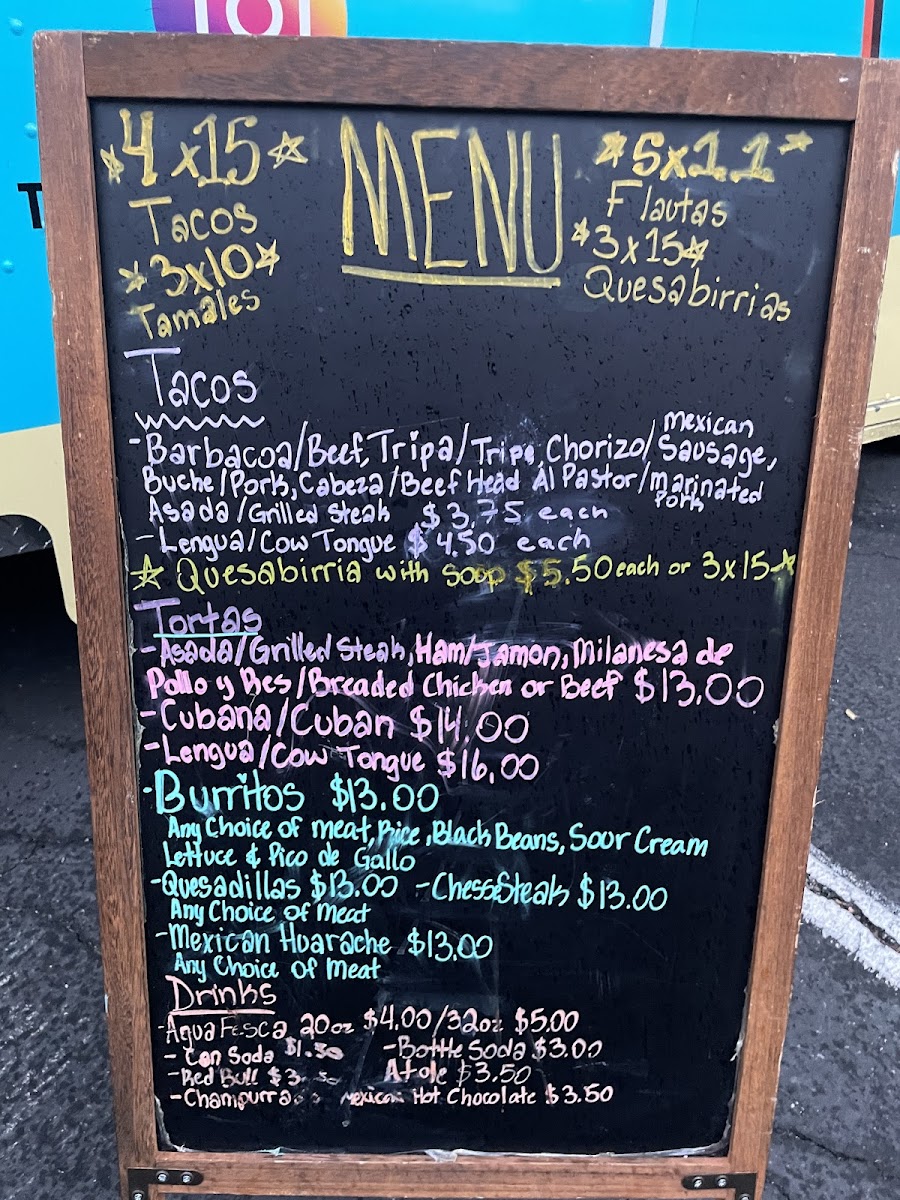 4x15
Tacos
3x10
Tamales
MENU
5x11
Flautas
3x15
Quesabirrias
Tacos
-Barbacoa/Beef, Tripa/Tripe, Chorizo/Mexican Sausage,
Buche/Pork, Cabeza/Beef Head Al Pastor/Marinated Pork
Asada/Grilled Steak $3.75 each
-Lengua/Cow Tongue $4.50 each
Quesabirria with soop $5.50 each or 3x15
Tortas
-Asada/Grilled Steak, Ham/Jamon, Milanesa de
Pollo y Res/Breaded Chicken or Beef $13.00
-Cubana/Cuban $14.00
-Lengua/Cow Tongue $16.00
-Burritos $13.00
Any Choice of meat, Rice, Black Beans, Sour Cream
Lettuce & Pico de Gallo
-Quesadillas $13.00 -ChesseSteak $13.00
Any Choice of Meat
-Mexican Huarache $13.00
Any Choice of Meat
Drinks
-Agua Fesca 20oz $4.00/32oz $5.00
-Can Soda $1.50 -Bottle Soda $3.00
-Red Bull Atole $3.50
Mexican Hot Chocolate $3.50